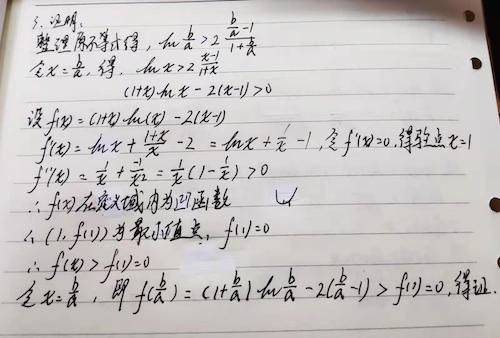 3. 证明:
整理原不等式得, ln b/a > 2 (b/a - 1)/(1 + b/a)
令x = b/a, 得, ln x > 2 (x-1)/(1+x)
(1+x) ln x - 2(x-1) > 0
设 f(x) = (1+x) ln(x) - 2(x-1)
f'(x) = ln x + (1+x)/x - 2 = ln x + 1/x - 1, 令f'(x)=0, 得驻点x=1
f''(x) = 1/x + (-1)/x² = 1/x (1 - 1/x) > 0
∴ f(x)在定义域内为凹函数
∴ (1, f(1)) 为最小值点, f(1)=0
∴ f(x) > f(1) = 0
令x = b/a, 即 f(b/a) = (1 + b/a) ln b/a - 2(b/a - 1) > f(1) = 0, 得证.